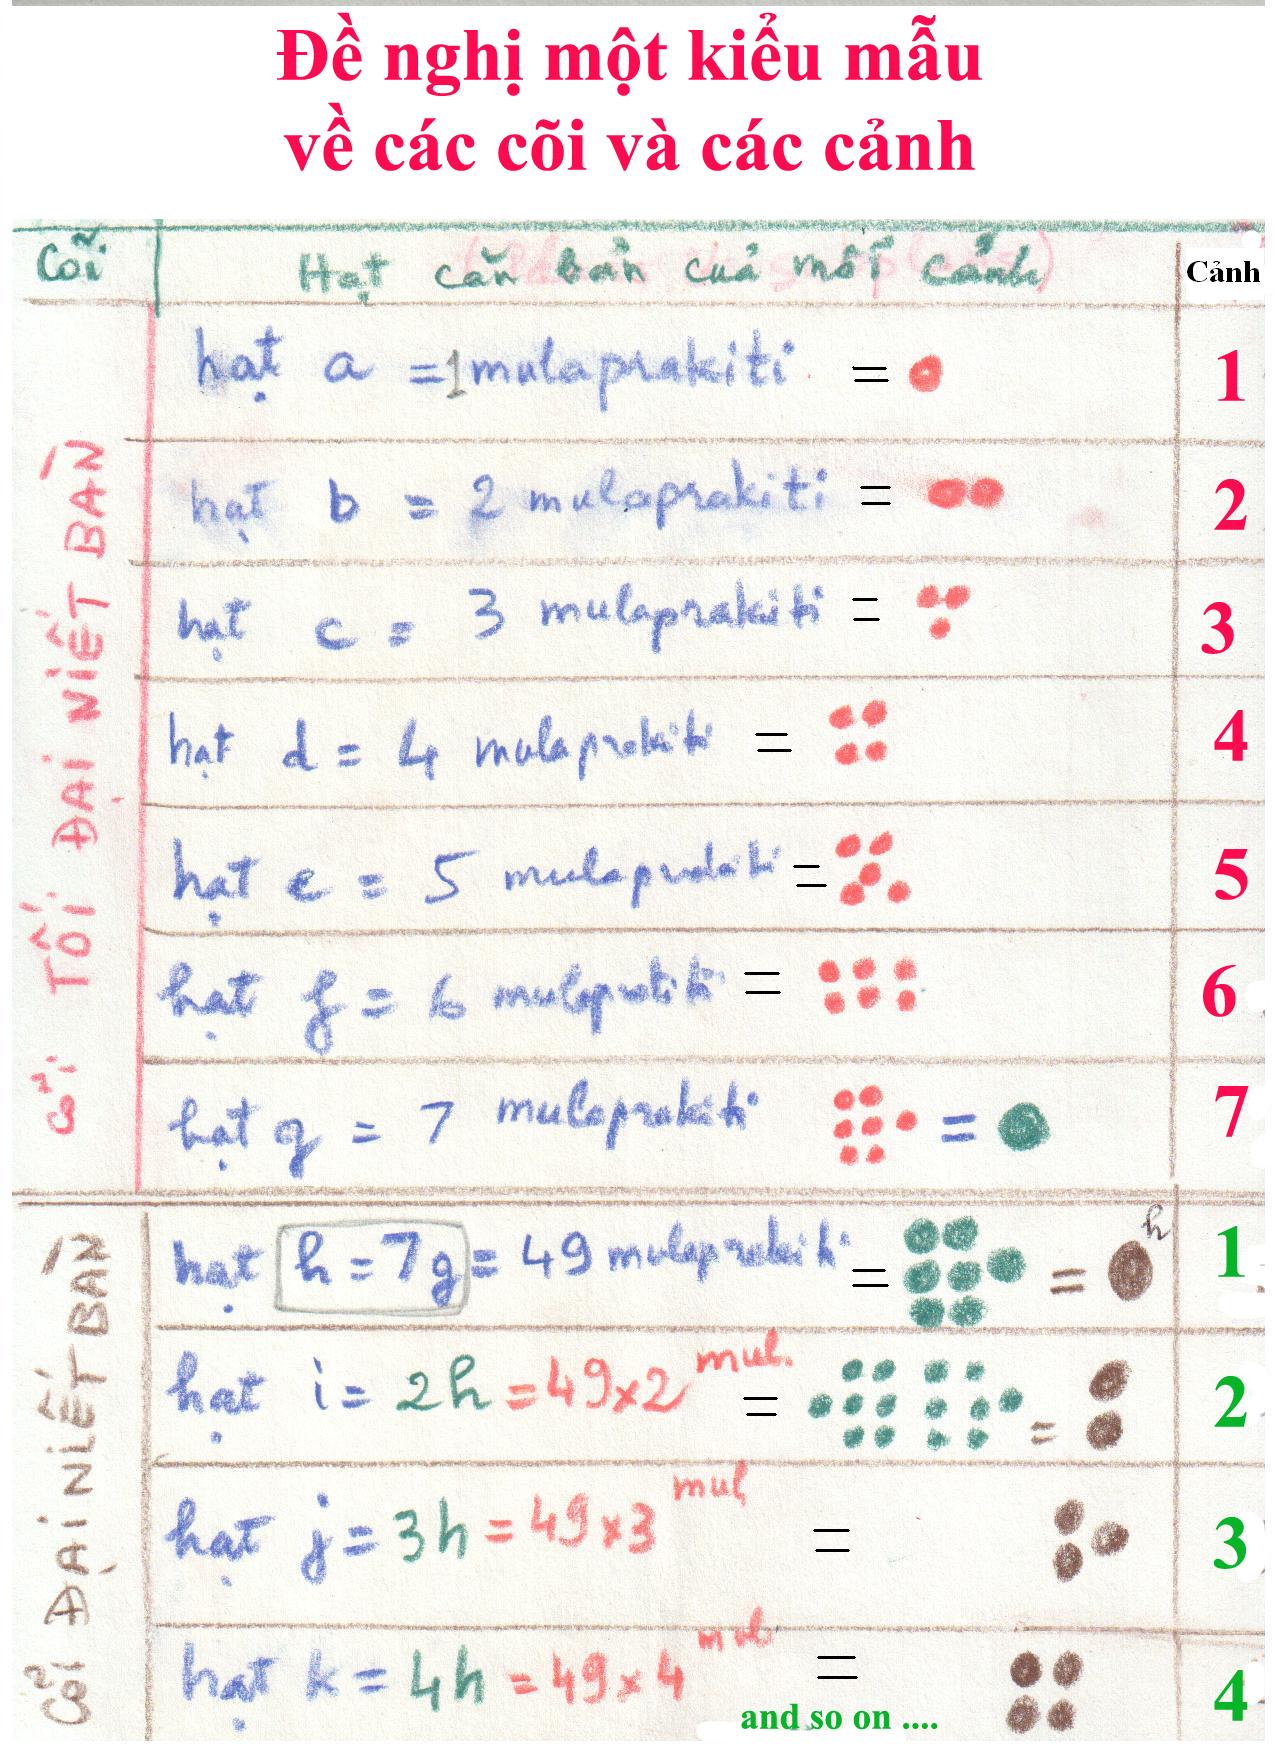 Đề nghị một kiểu mẫu
về các cõi và các cảnh
Cõi Hạt căn bản của mỗi cảnh Cảnh
CÕI TỐI ĐẠI NIẾT BÀN
hạt a = 1 mulaprakiti = 1
hạt b = 2 mulaprakiti = 2
hạt c = 3 mulaprakiti = 3
hạt d = 4 mulaprakiti = 4
hạt e = 5 mulaprakiti = 5
hạt f = 6 mulaprakiti = 6
hạt g = 7 mulaprakiti = 7
CÕI ĐẠI NIẾT BÀN
hạt h = 7g = 49 mulaprakiti = = h 1
hạt i = 2h = 49x2 mul. = = 2
hạt j = 3h = 49x3 mul = 3
hạt k = 4h = 49x4 mul = 4
and so on ....